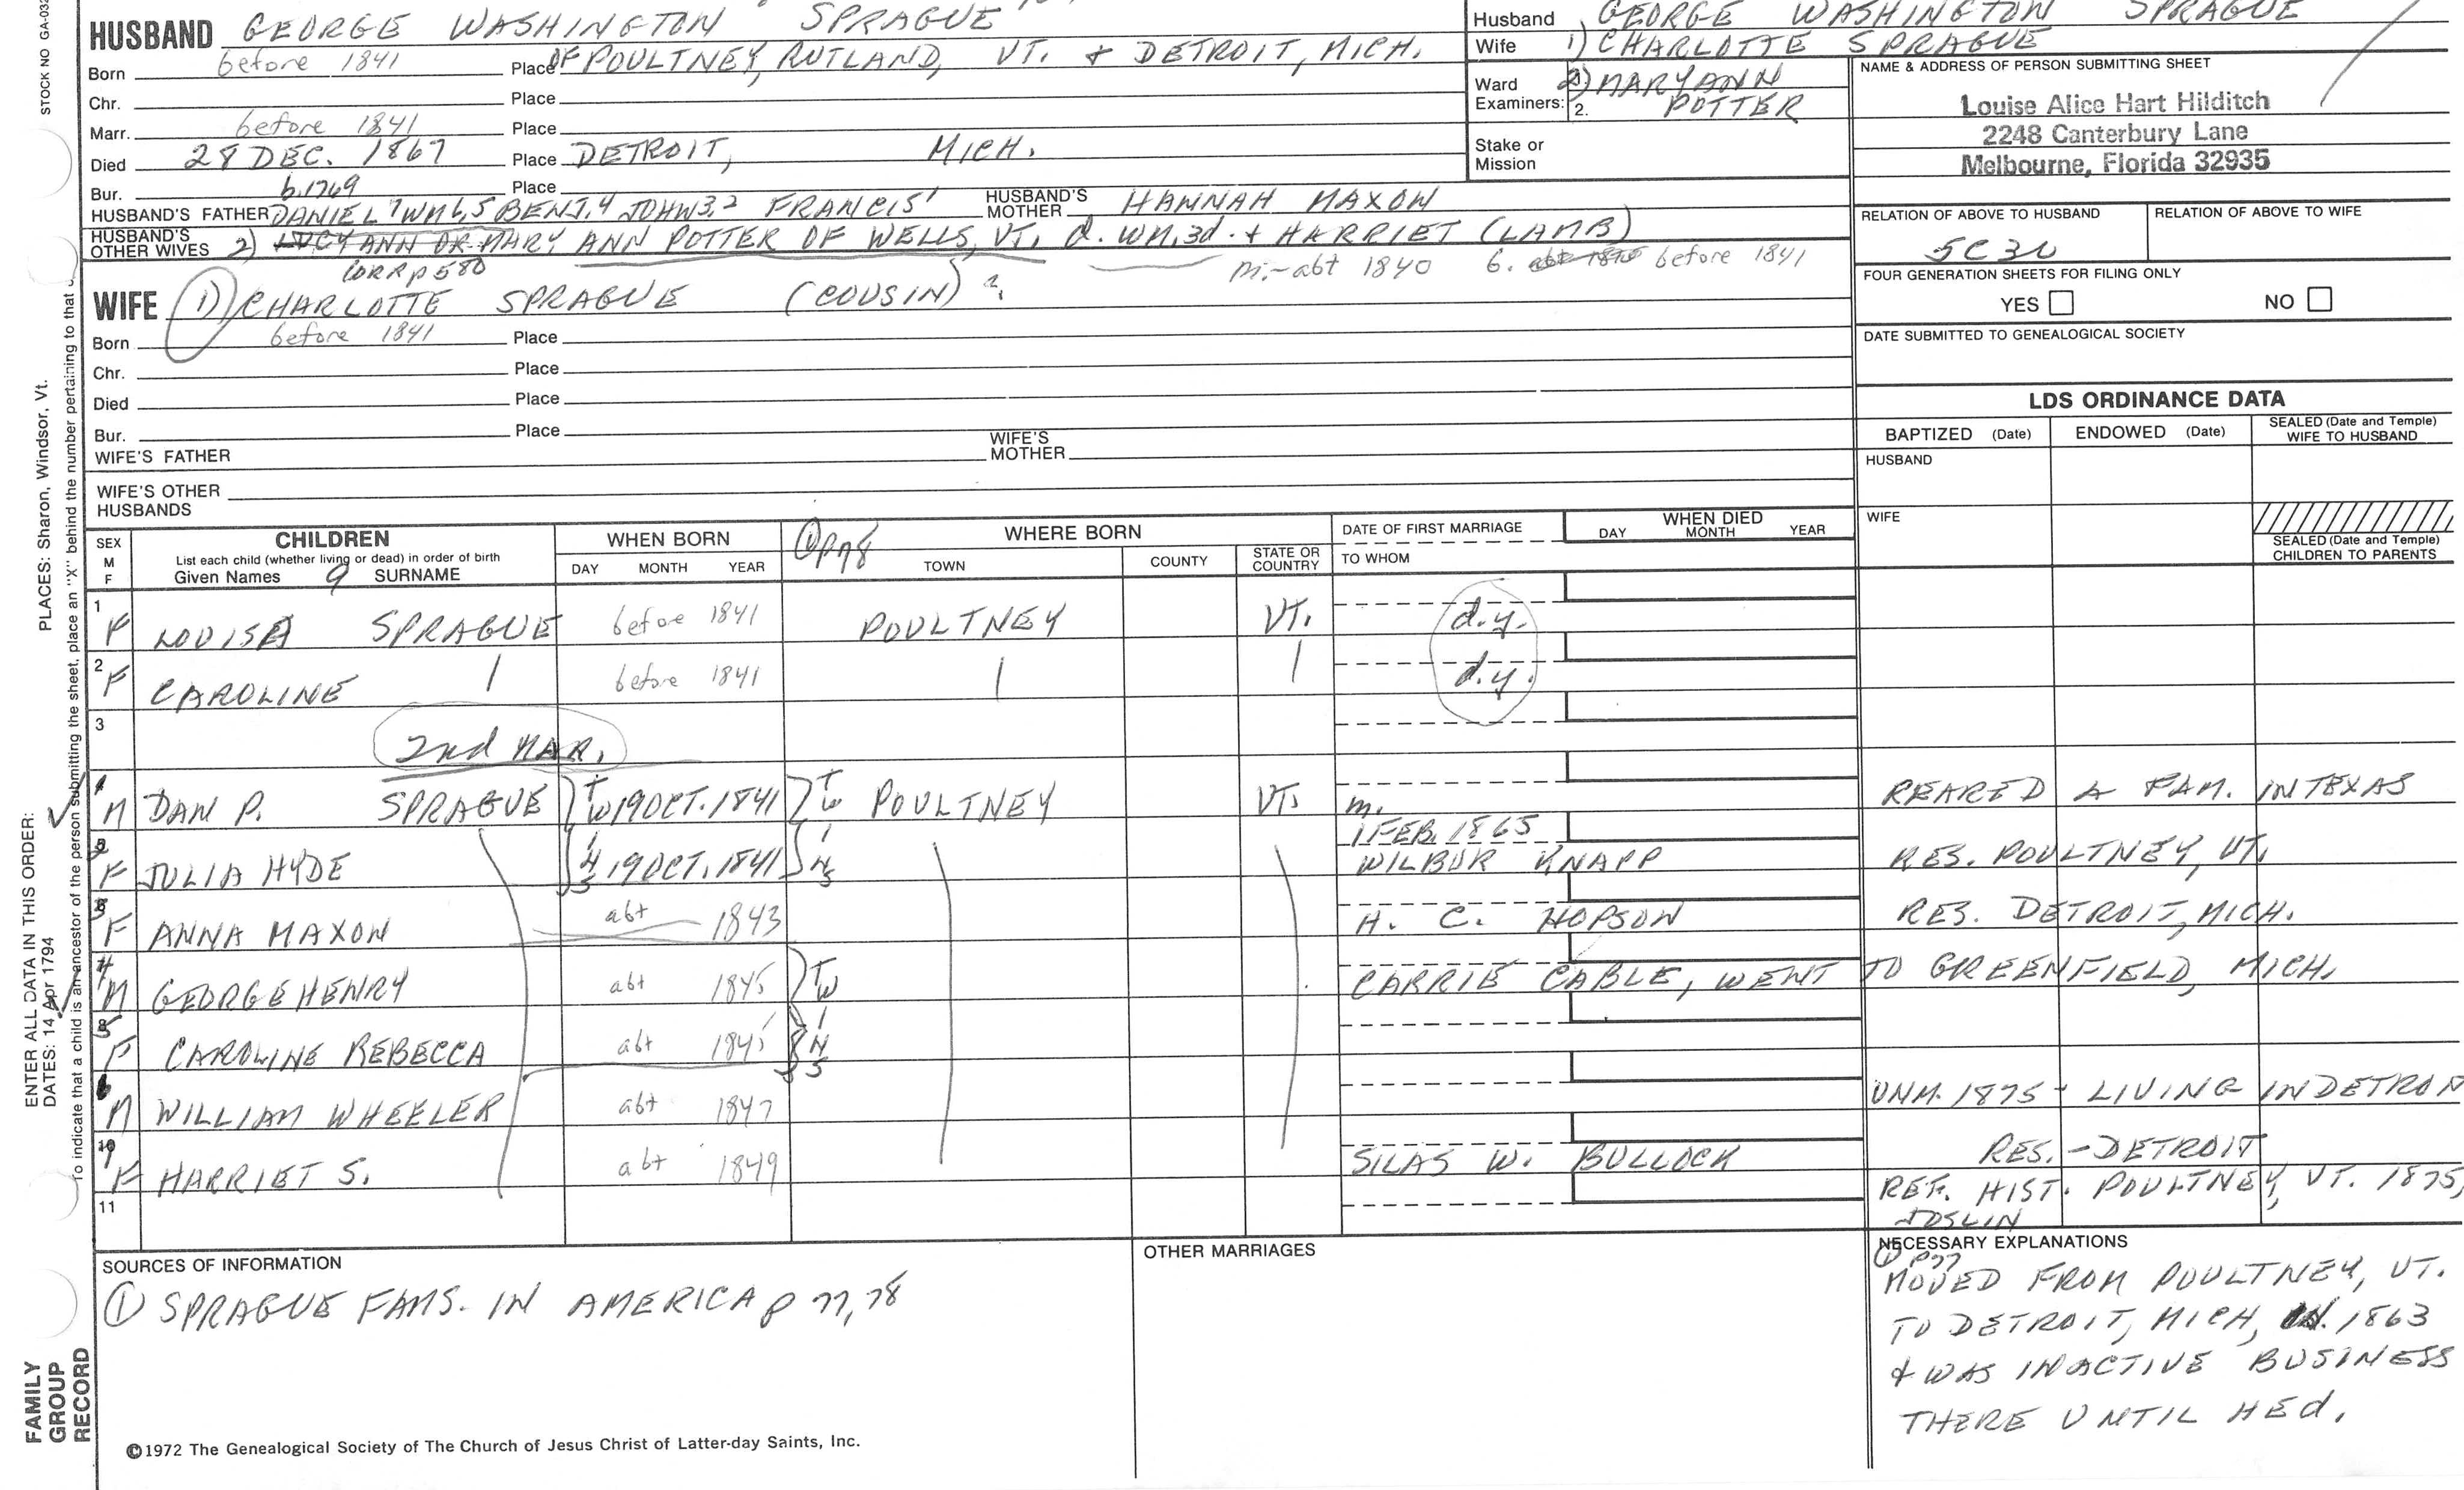 STOCK NO GA-032
HUSBAND GEORGE WASHINGTON SPRAGUE
Born before 1841 Place OF POULTNEY, RUTLAND, VT. & DETROIT, MICH.
Chr. Place
Marr. before 1841 Place
Died 28 DEC. 1867 Place DETROIT, MICH.
Bur. Place
b.1769
HUSBAND'S FATHER DANIEL 7 WM 6,5 BENJ. 4 JOHN 3,2 FRANCIS 1 HUSBAND'S MOTHER HANNAH MAXON
HUSBAND'S OTHER WIVES 2) LUCY ANN OR MARY ANN POTTER OF WELLS, VT. d. WM. 3d. & HARRIET (LAMB)
CORR p 580 m.-abt 1840 b. abt 1815 before 1841
WIFE 1) CHARLOTTE SPRAGUE (COUSIN) ?
Born before 1841 Place
Chr. Place
Died Place
Bur. Place
WIFE'S FATHER WIFE'S MOTHER
WIFE'S OTHER HUSBANDS
Husband GEORGE WASHINGTON SPRAGUE
Wife 1) CHARLOTTE SPRAGUE
Ward Examiners: 2) MARY ANN
2. POTTER
Stake or Mission
NAME & ADDRESS OF PERSON SUBMITTING SHEET
Louise Alice Hart Hilditch
2248 Canterbury Lane
Melbourne, Florida 32935
RELATION OF ABOVE TO HUSBAND RELATION OF ABOVE TO WIFE
5C3U
FOUR GENERATION SHEETS FOR FILING ONLY
YES NO
DATE SUBMITTED TO GENEALOGICAL SOCIETY
LDS ORDINANCE DATA
BAPTIZED (Date) ENDOWED (Date) SEALED (Date and Temple) WIFE TO HUSBAND
HUSBAND
WIFE
SEALED (Date and Temple) CHILDREN TO PARENTS
SEX M F CHILDREN WHEN BORN ① p 78 WHERE BORN DATE OF FIRST MARRIAGE WHEN DIED
List each child (whether living or dead) in order of birth
Given Names 9 SURNAME DAY MONTH YEAR TOWN COUNTY STATE OR COUNTRY TO WHOM DAY MONTH YEAR
1 F LOUISA SPRAGUE before 1841 POULTNEY VT. d.y.
2 F CAROLINE before 1841 d.y.
3 2nd MAR.
1 M DAN P. SPRAGUE TW 19 OCT. 1841 TW POULTNEY VT. m. REARED A FAM. IN TEXAS
1 FEB. 1865
2 F JULIA HYDE INS 19 OCT. 1841 INS WILBUR KNAPP RES. POULTNEY, VT.
3 F ANNA MAXON abt 1843 H. C. HOPSON RES. DETROIT, MICH.
4 M GEORGE HENRY abt 1845 TW CARRIE CABLE, WENT TO GREENFIELD, MICH.
5 F CAROLINE REBECCA abt 1845 INS
6 M WILLIAM WHEELER abt 1847 UNM. 1875 - LIVING IN DETROI
7 F HARRIET S. abt 1849 SILAS W. BULLOCK RES. - DETROIT
11 REF. HIST. POULTNEY, VT. 1875,
JOSLIN
SOURCES OF INFORMATION
① SPRAGUE FAMS. IN AMERICA p 77, 78
OTHER MARRIAGES
NECESSARY EXPLANATIONS
① p 77
MOVED FROM POULTNEY, VT.
TO DETROIT, MICH, IN. 1863
& WAS IN ACTIVE BUSINESS
THERE UNTIL HE d.
©1972 The Genealogical Society of The Church of Jesus Christ of Latter-day Saints, Inc.
PLACES: Sharon, Windsor, Vt.
ENTER ALL DATA IN THIS ORDER:
DATES: 14 Apr 1794
To indicate that a child is an ancestor of the person submitting the sheet, place an "X" behind the number pertaining to that
FAMILY
GROUP
RECORD